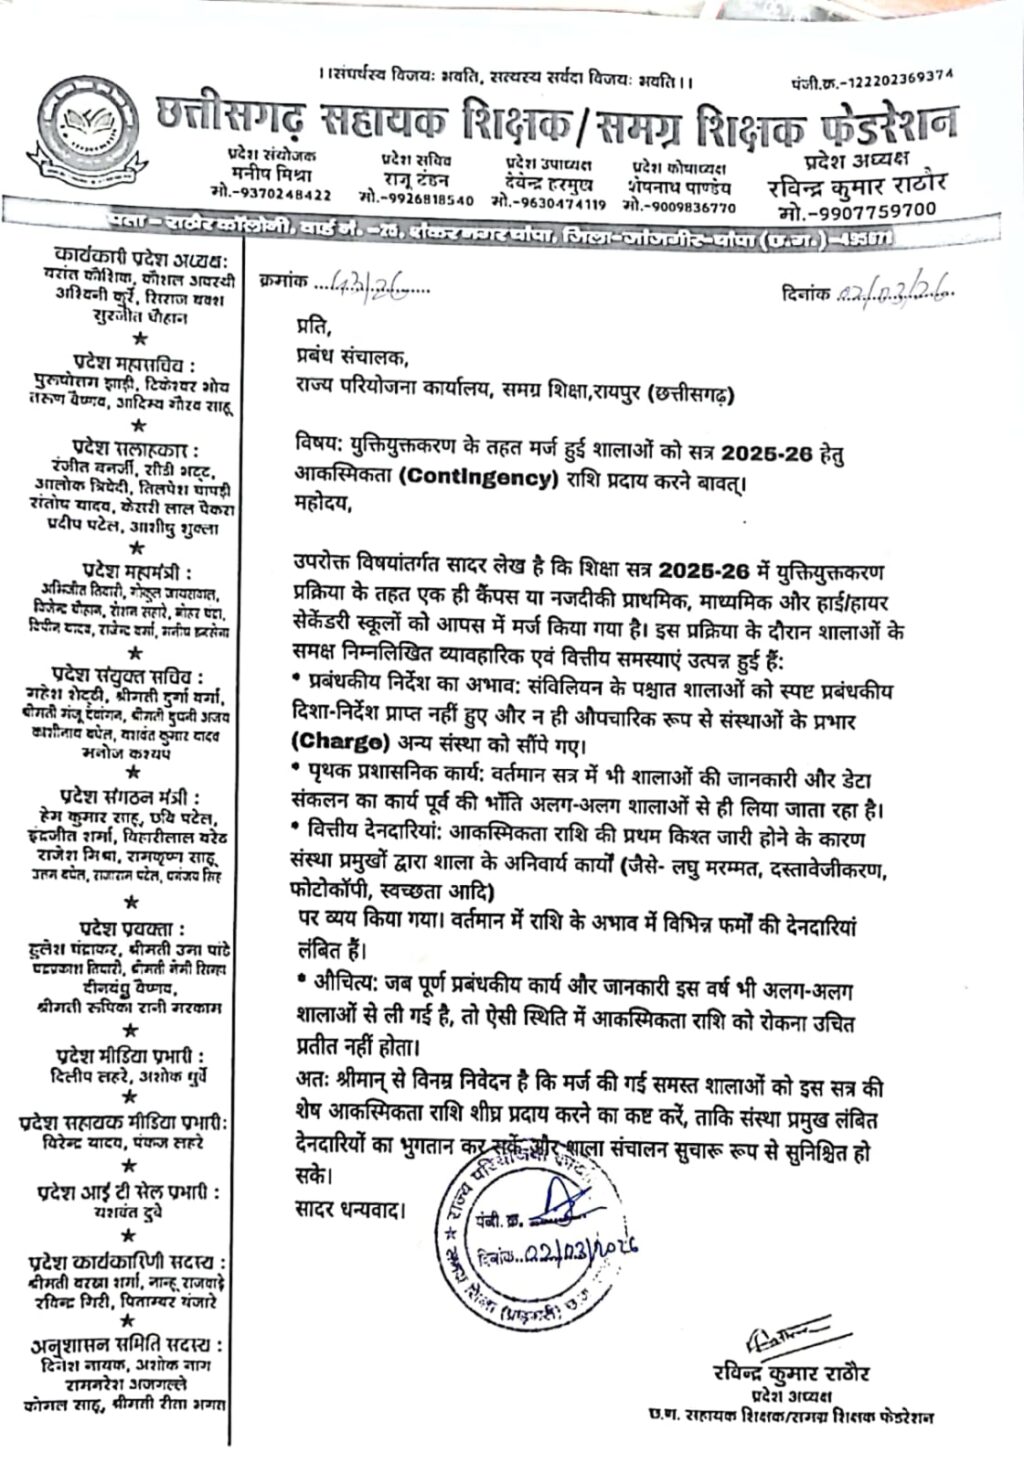 ।।संघर्षस्य विजयः भवति, सत्यस्य सर्वदा विजयः भवति।।
पंजी.क्र.-122202369374
छत्तीसगढ़ सहायक शिक्षक/समग्र शिक्षक फेडरेशन
प्रदेश संयोजक
मनीष मिश्रा
मो.-9370248422
प्रदेश सचिव
राजू टंडन
मो.-9926818540
प्रदेश उपाध्यक्ष
देवेन्द्र हरमुख
मो.-9630474119
प्रदेश कोषाध्यक्ष
शेषनाथ पाण्डेय
मो.-9009836770
प्रदेश अध्यक्ष
रविन्द्र कुमार राठौर
मो.-9907759700
पता – राठौर कॉलोनी, वार्ड नं. –25, शंकर नगर चांपा, जिला–जांजगीर–चांपा (छ.ग.)–495671
कार्यकारी प्रदेश अध्यक्ष:
बसंत कौशिक, कौशल अवस्थी
अश्विनी कुर्रे, सिराज बक्श
सुरजीत चौहान
प्रदेश महासचिव :
पुरुषोत्तम झाड़ी, टिकेश्वर भोय
तरुण वैष्णव, आदित्य गौरव साहू
प्रदेश सलाहकार :
रंजीत बनर्जी, सीडी भट्ट,
आलोक त्रिवेदी, तिलपेश पापड़ी
संतोष यादव, केशरी लाल पैकरा
प्रदीप पटेल, आशीष शुक्ला
प्रदेश महामंत्री :
अभिजीत तिवारी, गोकुल जायसवाल,
विजेन्द्र चौहान, रोशन सहारे, मोहर पंद्रा,
विपीन यादव, राजेन्द्र वर्मा, मनीष
प्रदेश संयुक्त सचिव :
महेश शेट्टी, श्रीमती दुर्गा वर्मा,
श्रीमती मंजू देवांगन, श्रीमती
काशीनाथ बघेल, यशवंत कुमार यादव
मनोज कश्यप
प्रदेश संगठन मंत्री :
हेम कुमार साहू, छवि पटेल,
इंद्रजीत शर्मा, विहारीलाल बरेठ
राजेश मिश्रा, रामकृष्ण साहू
उत्तम बघेल, राजाराम पटेल, धनंजय सिंह
प्रदेश प्रवक्ता :
हुलेश चंद्राकर, श्रीमती उमा पांडे
चंद्रप्रकाश तिवारी, श्रीमती नेमी सिन्हा
दीनबंधु वैष्णव,
श्रीमती रूपिका रानी मरकाम
प्रदेश मीडिया प्रभारी :
दिलीप लहरे, अशोक धुर्वे
प्रदेश सहायक मीडिया प्रभारी:
विरेन्द्र यादव, पंकज लहरे
प्रदेश आई टी सेल प्रभारी :
यशवंत दुबे
प्रदेश कार्यकारिणी सदस्य :
श्रीमती बरखा शर्मा, नान्हू राजवाड़े
रविन्द्र गिरी, पिताम्बर बंजारे
अनुशासन समिति सदस्य :
दिनेश नायक, अशोक नाग
रामनरेश अजगल्ले
कोमल साहू, श्रीमती रीता भगत
क्रमांक ...43/26...
दिनांक 02/03/26
प्रति,
प्रबंध संचालक,
राज्य परियोजना कार्यालय, समग्र शिक्षा,रायपुर (छत्तीसगढ़)
विषय: युक्तियुक्तकरण के तहत मर्ज हुई शालाओं को सत्र 2025-26 हेतु
आकस्मिकता (Contingency) राशि प्रदाय करने बावत्।
महोदय,
उपरोक्त विषयांतर्गत सादर लेख है कि शिक्षा सत्र 2025-26 में युक्तियुक्तकरण
प्रक्रिया के तहत एक ही कैंपस या नजदीकी प्राथमिक, माध्यमिक और हाई/हायर
सेकेंडरी स्कूलों को आपस में मर्ज किया गया है। इस प्रक्रिया के दौरान शालाओं के
समक्ष निम्नलिखित व्यावहारिक एवं वित्तीय समस्याएं उत्पन्न हुई हैं:
* प्रबंधकीय निर्देश का अभाव: संविलियन के पश्चात शालाओं को स्पष्ट प्रबंधकीय
दिशा-निर्देश प्राप्त नहीं हुए और न ही औपचारिक रूप से संस्थाओं के प्रभार
(Charge) अन्य संस्था को सौंपे गए।
* पृथक प्रशासनिक कार्य: वर्तमान सत्र में भी शालाओं की जानकारी और डेटा
संकलन का कार्य पूर्व की भाँति अलग-अलग शालाओं से ही लिया जाता रहा है।
* वित्तीय देनदारियां: आकस्मिकता राशि की प्रथम किश्त जारी होने के कारण
संस्था प्रमुखों द्वारा शाला के अनिवार्य कार्यों (जैसे- लघु मरम्मत, दस्तावेजीकरण,
फोटोकॉपी, स्वच्छता आदि)
पर व्यय किया गया। वर्तमान में राशि के अभाव में विभिन्न फर्मों की देनदारियां
लंबित हैं।
* औचित्य: जब पूर्ण प्रबंधकीय कार्य और जानकारी इस वर्ष भी अलग-अलग
शालाओं से ली गई है, तो ऐसी स्थिति में आकस्मिकता राशि को रोकना उचित
प्रतीत नहीं होता।
अतः श्रीमान् से विनम्र निवेदन है कि मर्ज की गई समस्त शालाओं को इस सत्र की
शेष आकस्मिकता राशि शीघ्र प्रदाय करने का कष्ट करें, ताकि संस्था प्रमुख लंबित
देनदारियों का भुगतान कर सकें और शाला संचालन सुचारू रूप से सुनिश्चित हो
सके।
सादर धन्यवाद।
राज्य परियोजना
पंजी. क्र.
दिनांक..02/03/2026
समग्र शिक्षा
रविन्द्र कुमार राठौर
प्रदेश अध्यक्ष
छ.ग. सहायक शिक्षक/समग्र शिक्षक फेडरेशन